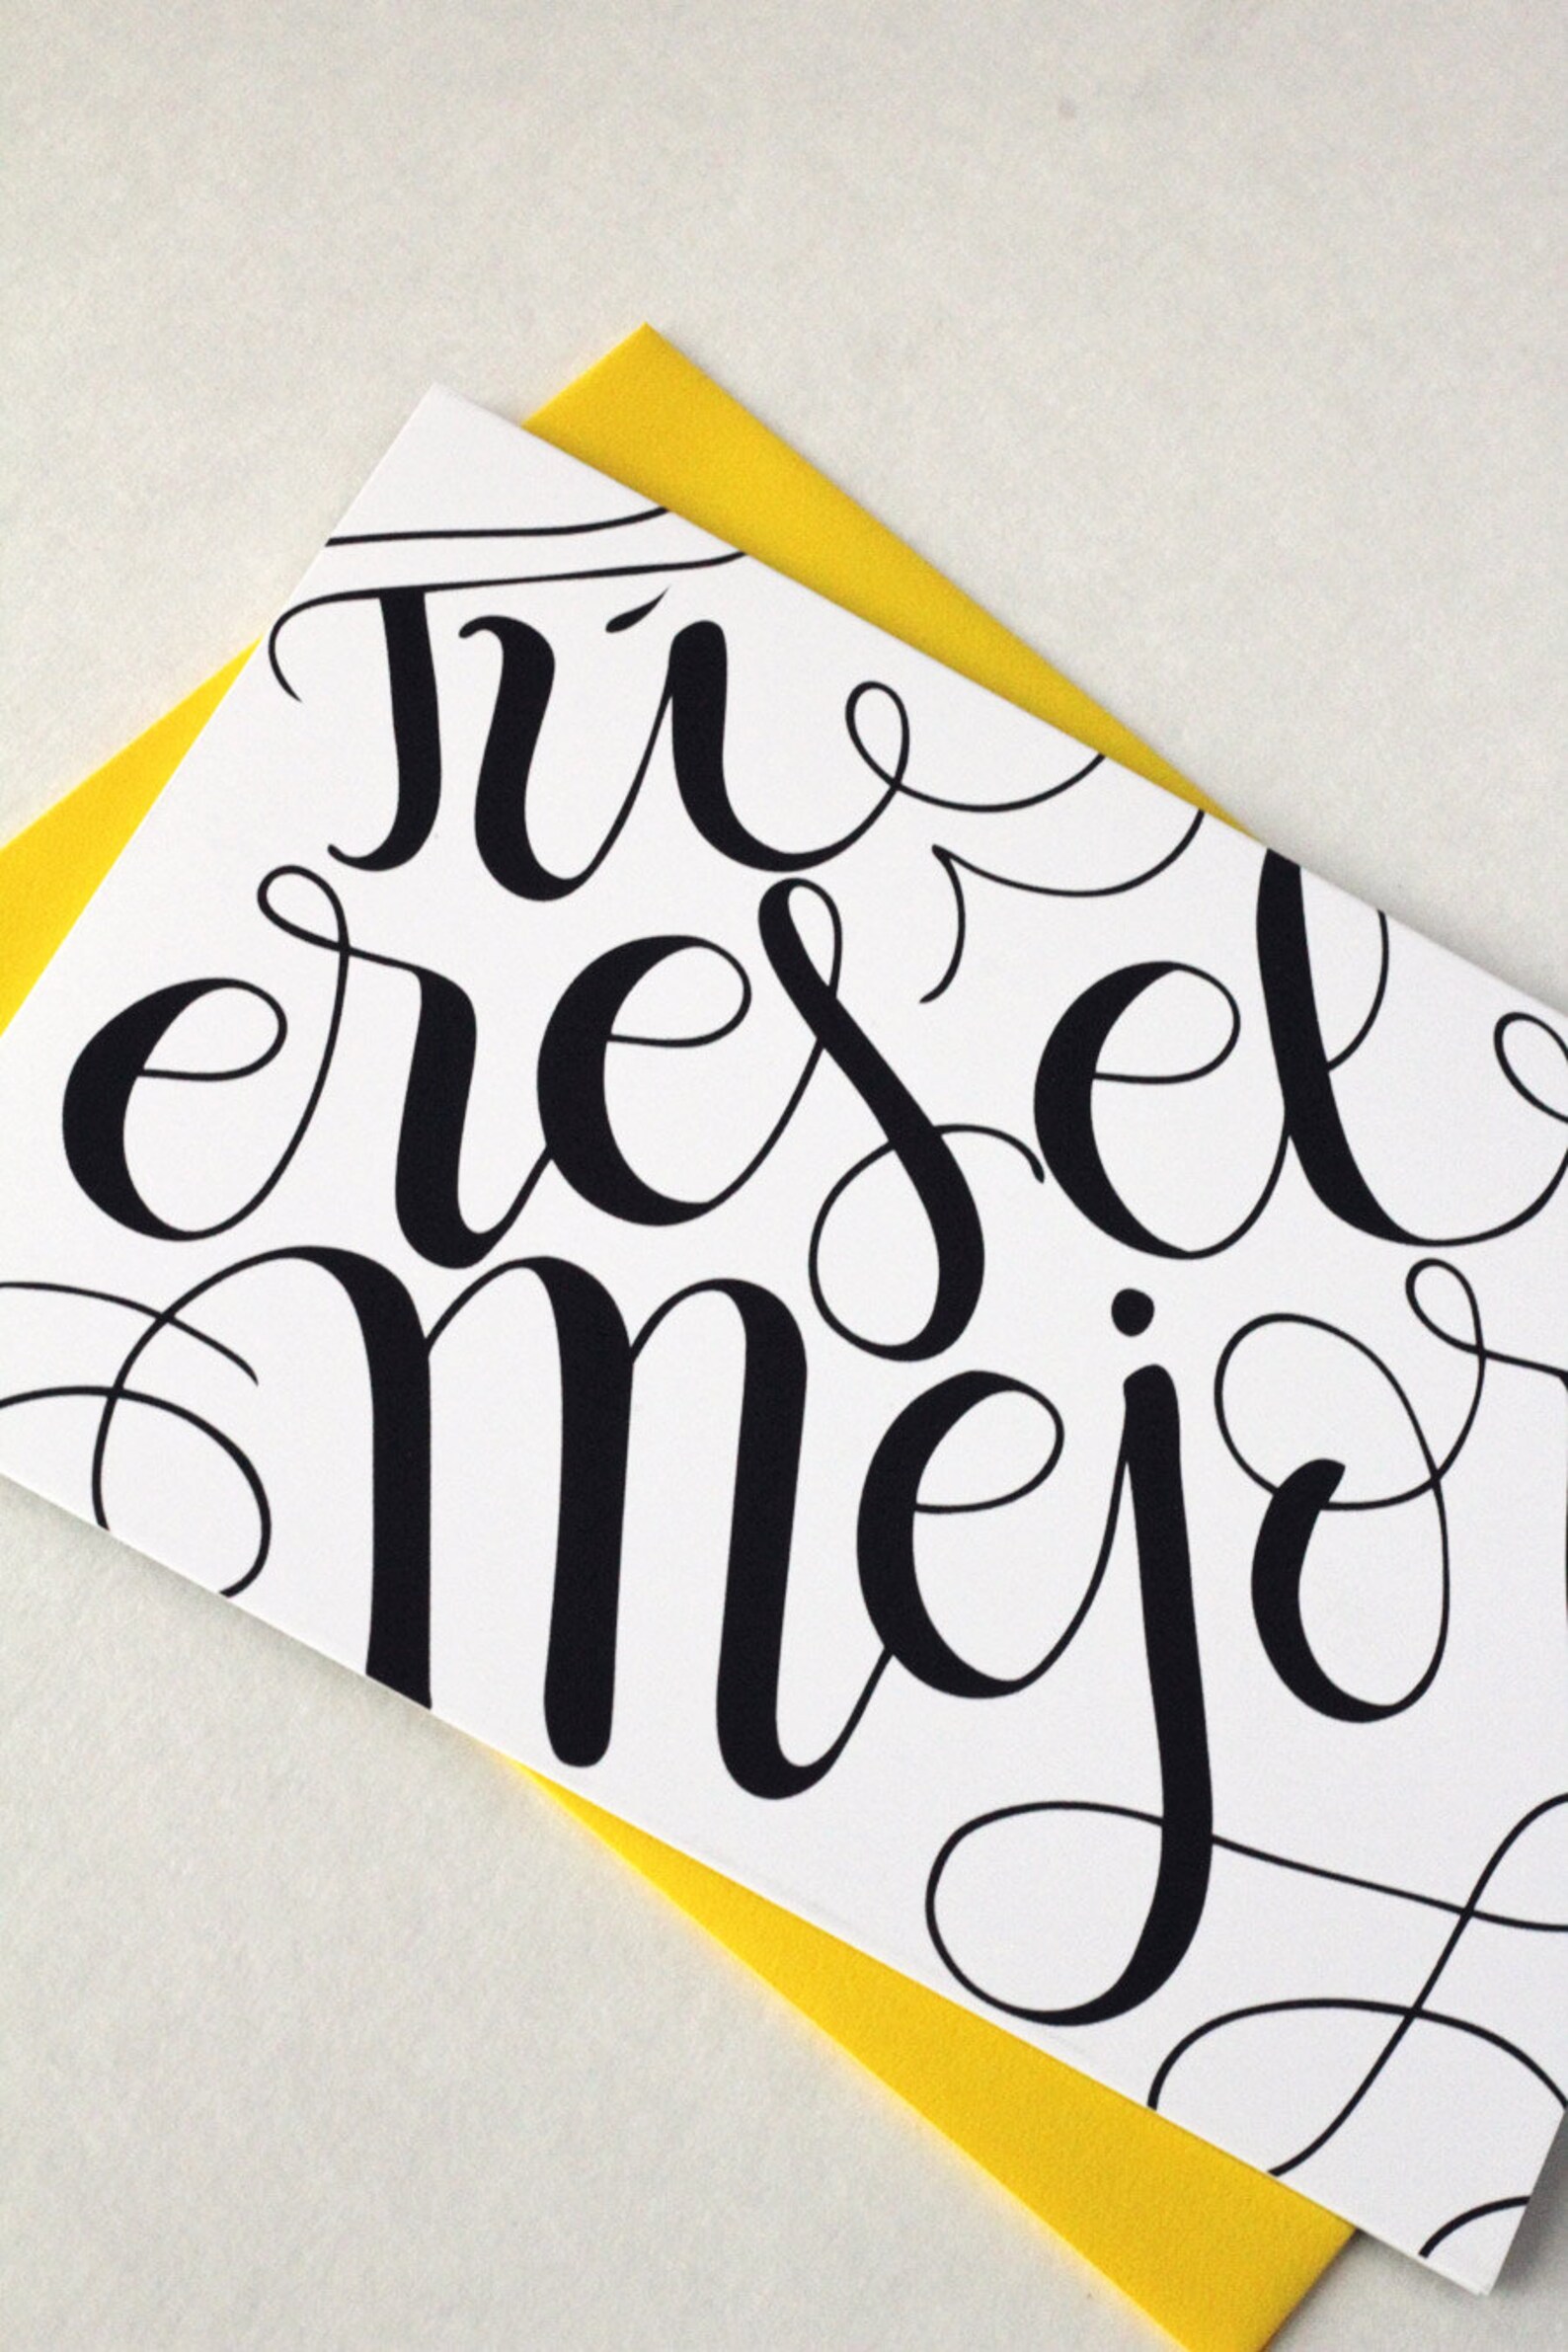 Tú
eres el
mejor